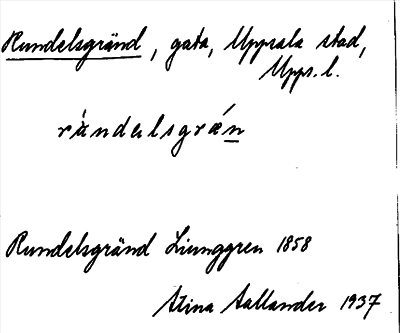 Rundelsgränd, gata, Uppsala stad,
Upps. l.
rúndəlsgrǽn
Rundelsgränd Ljunggren 1858
Stina Aallander 1937